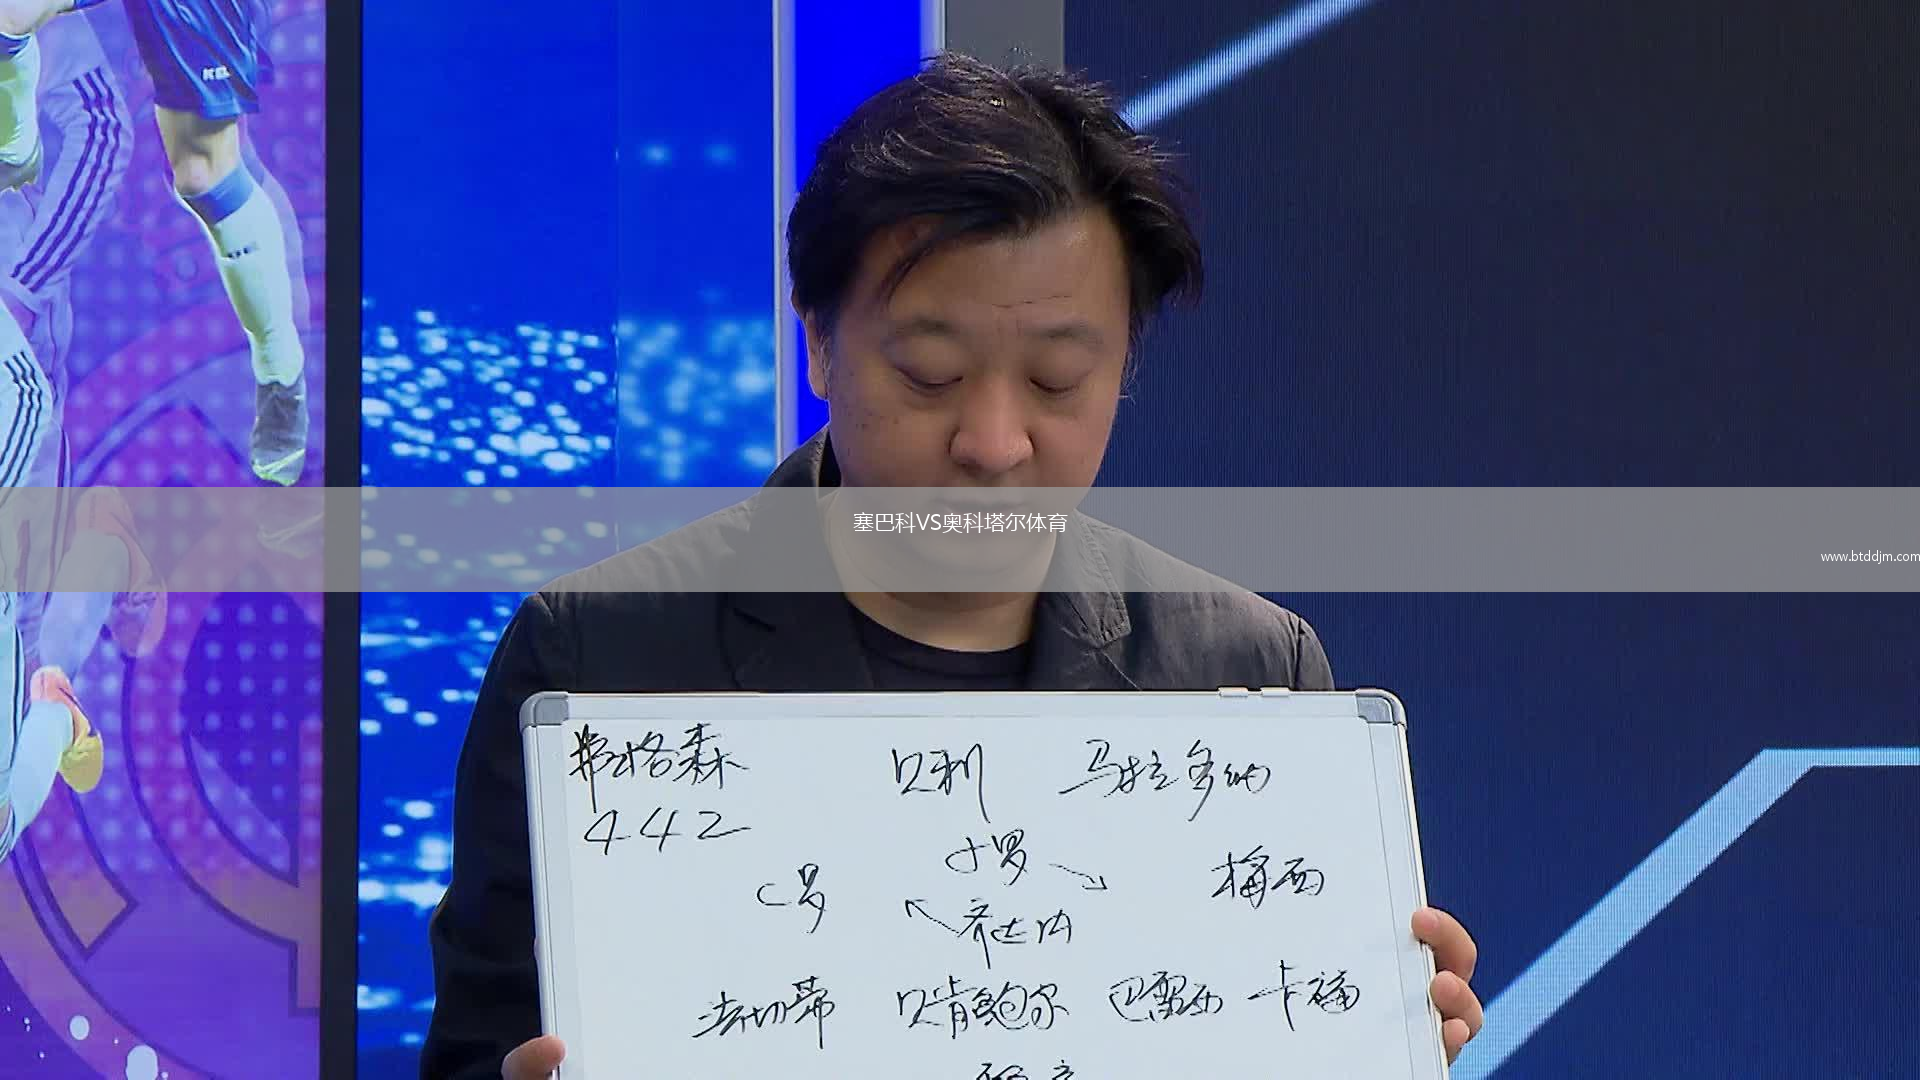 塞巴科VS奥科塔尔体育
www.btddjm.com
弗格森 贝利 马拉多纳
442
小罗
C罗 梅西
齐达内
法切蒂 贝肯鲍尔 巴雷西 卡福